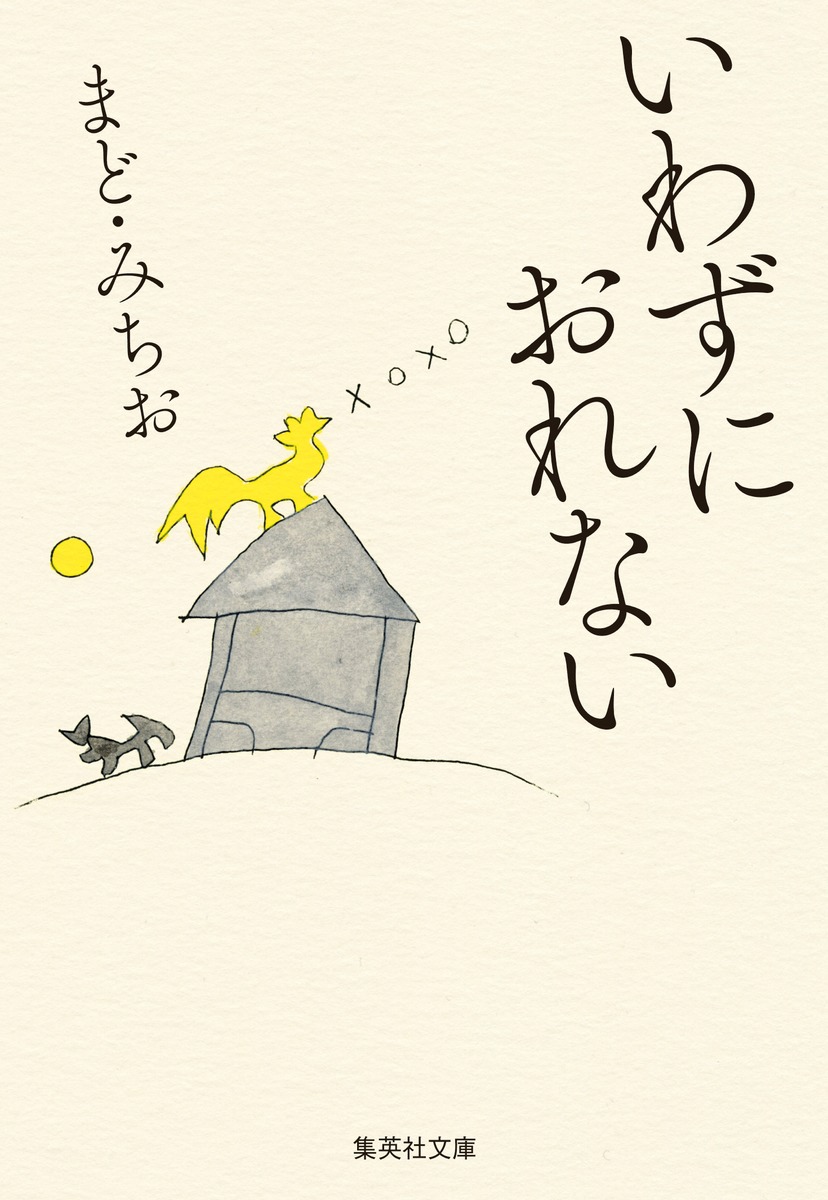 いわずに
おれない
まど・みちお
xoxo
集英社文庫